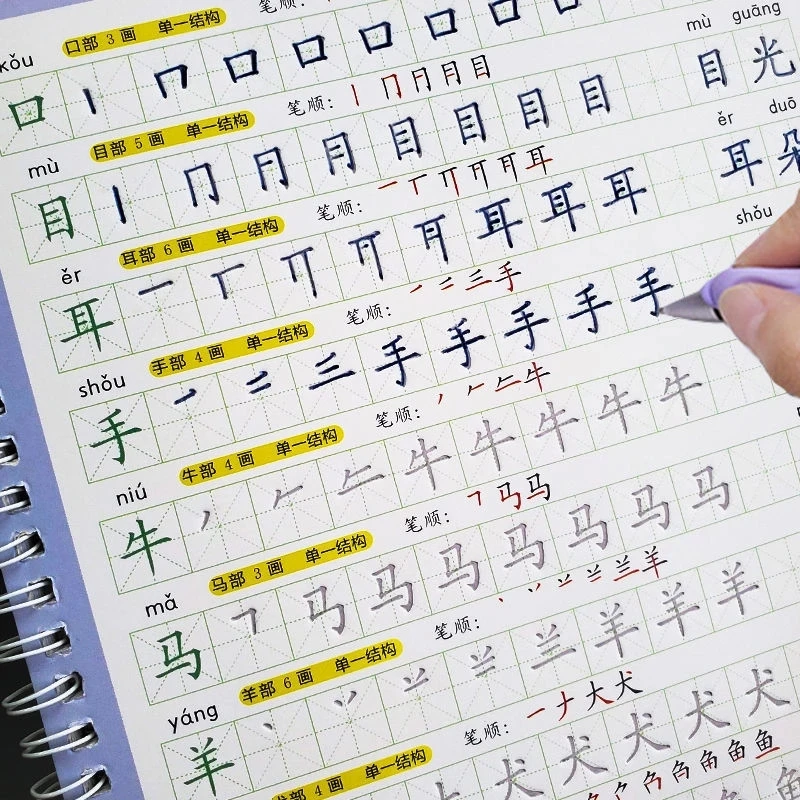 口部 3 画 单一结构 笔顺：
kǒu
口 丨 口 口 口 口 口 口
mù guāng
目部 5 画 单一结构 笔顺： 丨 冂 冃 月 目
mù
目 丨 冂 月 月 目 目 目 目 目 光
ěr duō
耳部 6 画 单一结构 笔顺： 一 丅 丌 耳 耳 耳
ěr
耳 一 丅 丌 耳 耳 耳 耳 耳 耳 朵
shǒu
手部 4 画 单一结构 笔顺： 一 二 三 手
shǒu
手 一 二 三 手 手 手 手 手
牛部 4 画 单一结构 笔顺： 丿 𠂉 牛
niú
牛 丿 𠂉 牛 牛 牛 牛 牛
马部 3 画 单一结构 笔顺： ㇕ 马 马
mǎ
马 ㇕ 马 马 马 马 马 马 马
羊部 6 画 单一结构 笔顺： 丶 丷 䒑 兰 羊
yáng
羊 丶 丷 䒑 兰 羊 羊 羊
犬部 4 画 单一结构 笔顺： 一 ナ 大 犬
犬 犬 犬 犬 犬
鱼